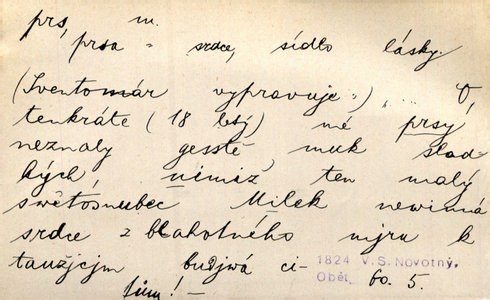 prs, m.
prsa = srdce, sídlo lásky.
(Sventomár vypravuje:) „... O,
tenkráte (18 letý) mé prsy
neznaly gesstě muk slad
kých, nimiž ten malý
swětosnubec Milek newinná
srdce z blahotného mjru k
taužjcjm budjwá ci-
tům! —
1824 V. S. Novotný,
Oběť. 60. 5.